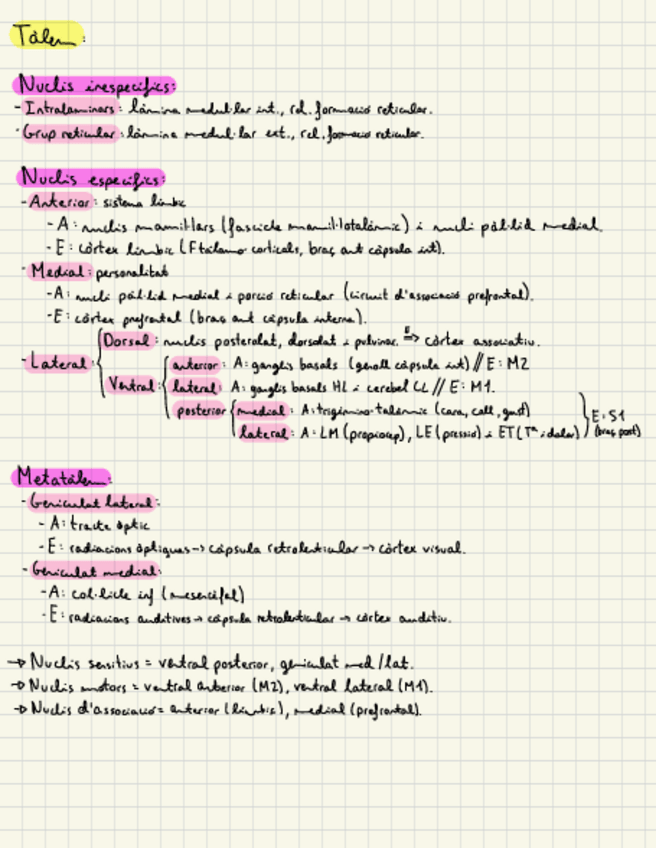 Tàlem:
Nuclis inespecífics:
- Intralaminars: làmina medul·lar int., rel. formació reticular.
- Grup reticular: làmina medul·lar ext., rel. formació reticular.
Nuclis específics:
- Anterior: sistema límbic
- A: nuclis mamil·lars (fascicle mamil·lotalàmic) i nucli pàl·lid medial.
- E: còrtex límbic (F tàlamo corticals, braç ant càpsula int).
- Medial: personalitat
- A: nucli pàl·lid medial i porció reticular (circuit d'associació prefrontal).
- E: còrtex prefrontal (braç ant càpsula interna).
- Lateral { Dorsal: nuclis posterolat, dorsolat i pulvinar. E => còrtex associatiu.
Ventral { anterior: A: ganglis basals (genoll càpsula int) // E: M2
lateral: A: ganglis basals HL i cerebel CL // E: M1.
posterior { medial: A: trigémino-talàmic (cara, coll, gust)
lateral: A: LM (propiocep), LE (pressió) i ET (Tª i dolor) } E: S1 (braç post)
Metatàlem:
- Geniculat lateral:
- A: tracte òptic
- E: radiacions òptiques -> càpsula retrolenticular -> còrtex visual.
- Geniculat medial:
- A: col·licle inf (mesencèfal)
- E: radiacions auditives -> càpsula retrolenticular -> còrtex auditiu.
-> Nuclis sensitius = ventral posterior, geniculat med/lat.
-> Nuclis motors = ventral anterior (M2), ventral lateral (M1).
-> Nuclis d'associació = anterior (límbic), medial (prefrontal).